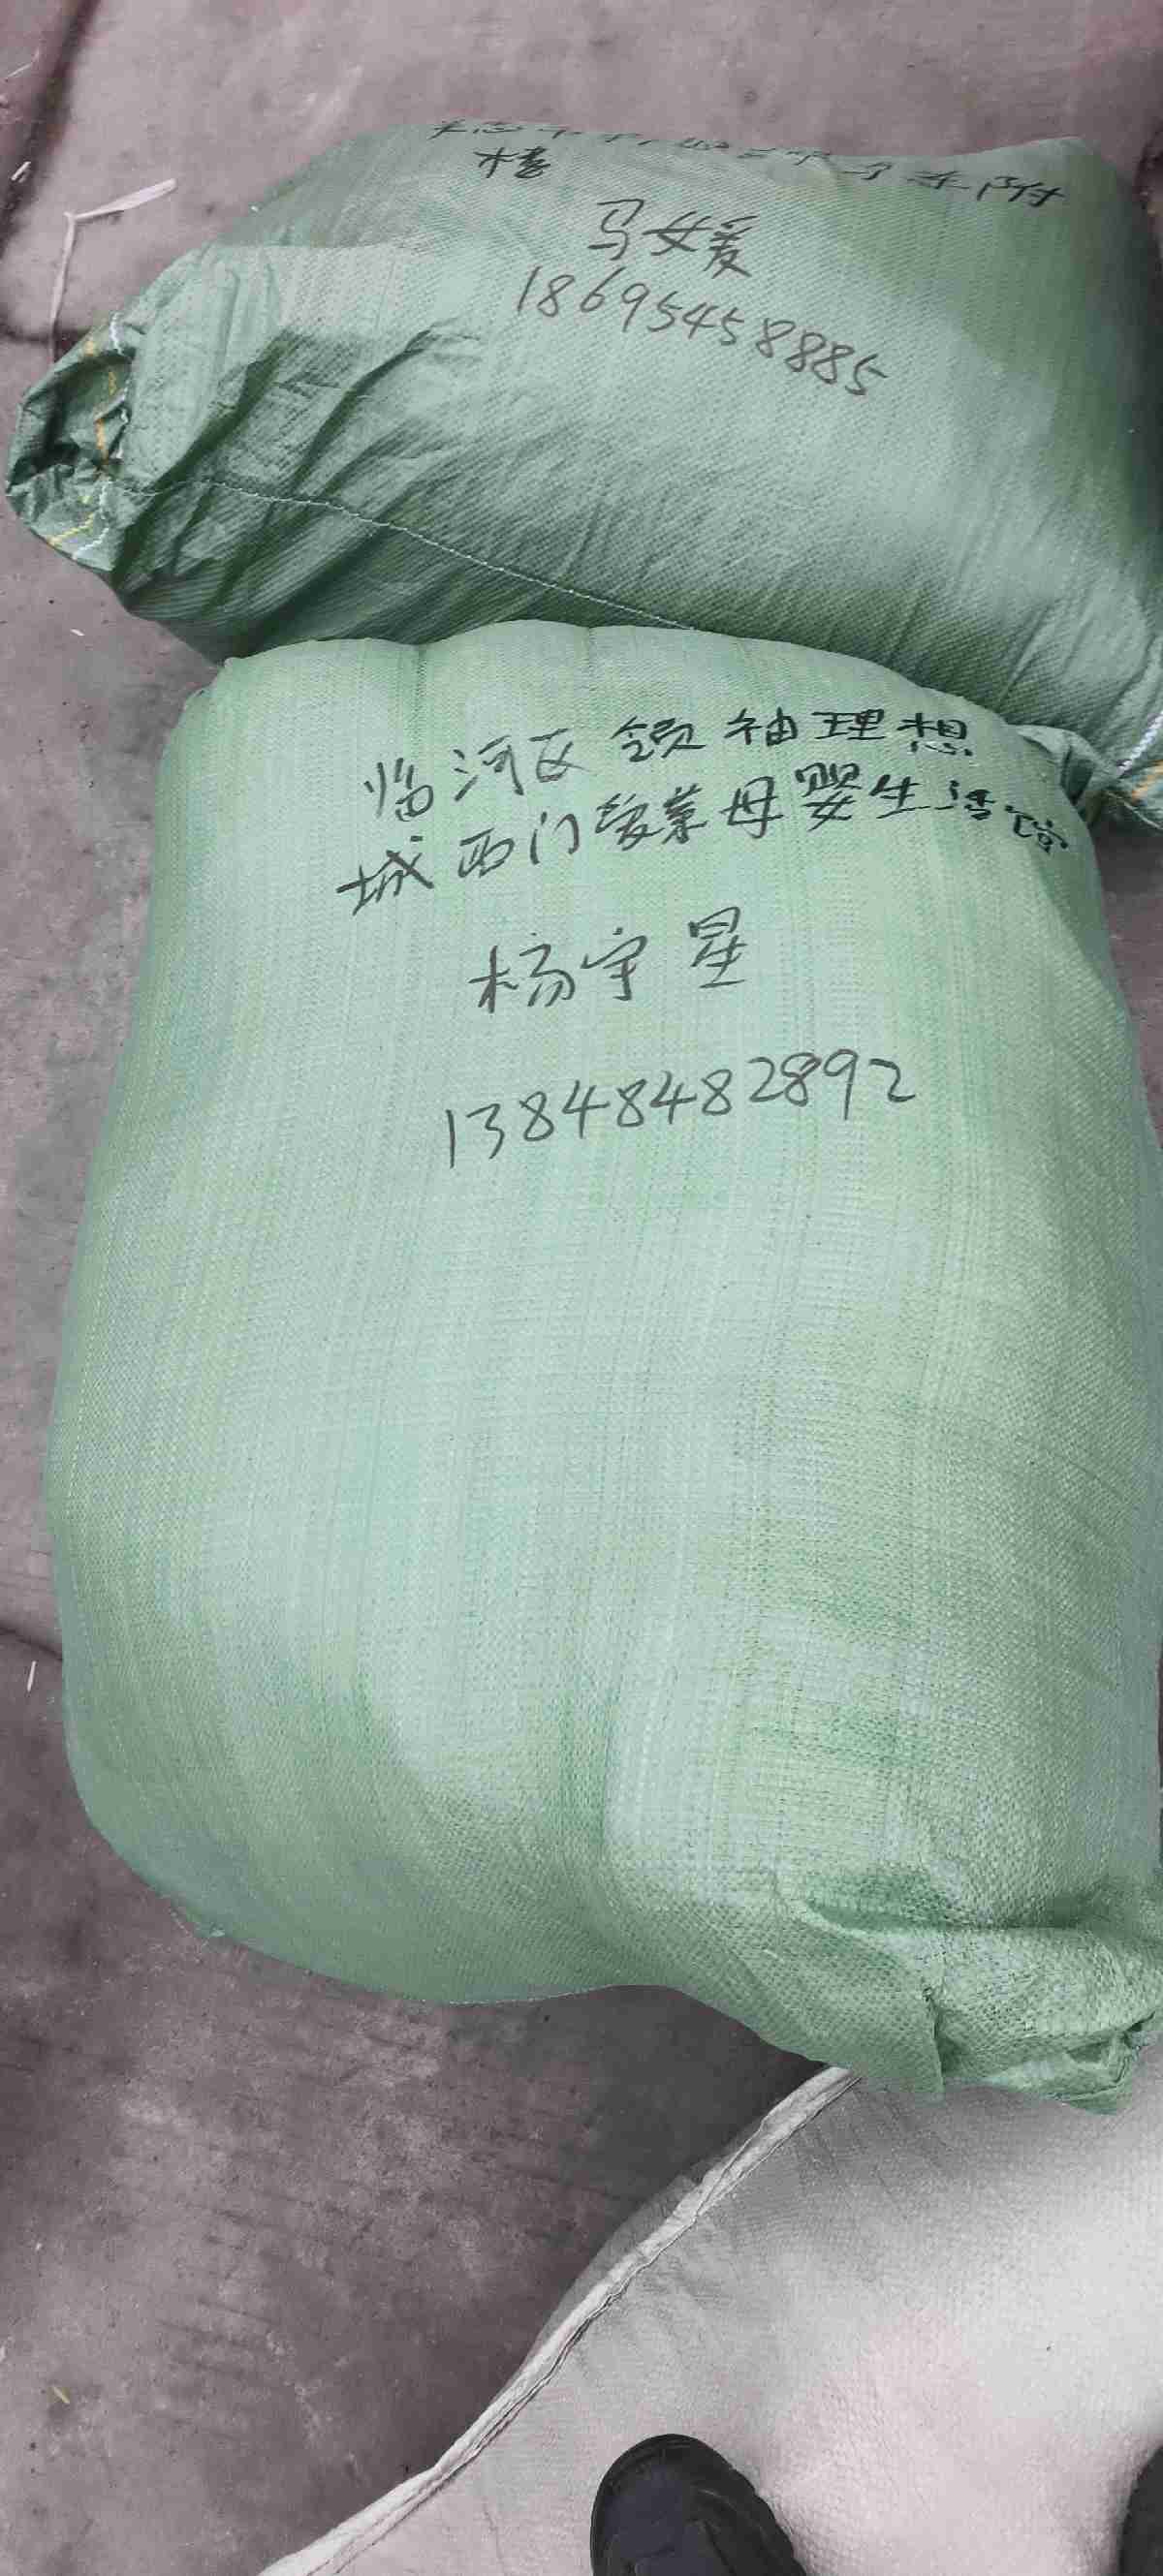 附
马媛
18695458885
临河区领袖理想
城西门爱慕母婴生活馆
杨宇星
13848482892